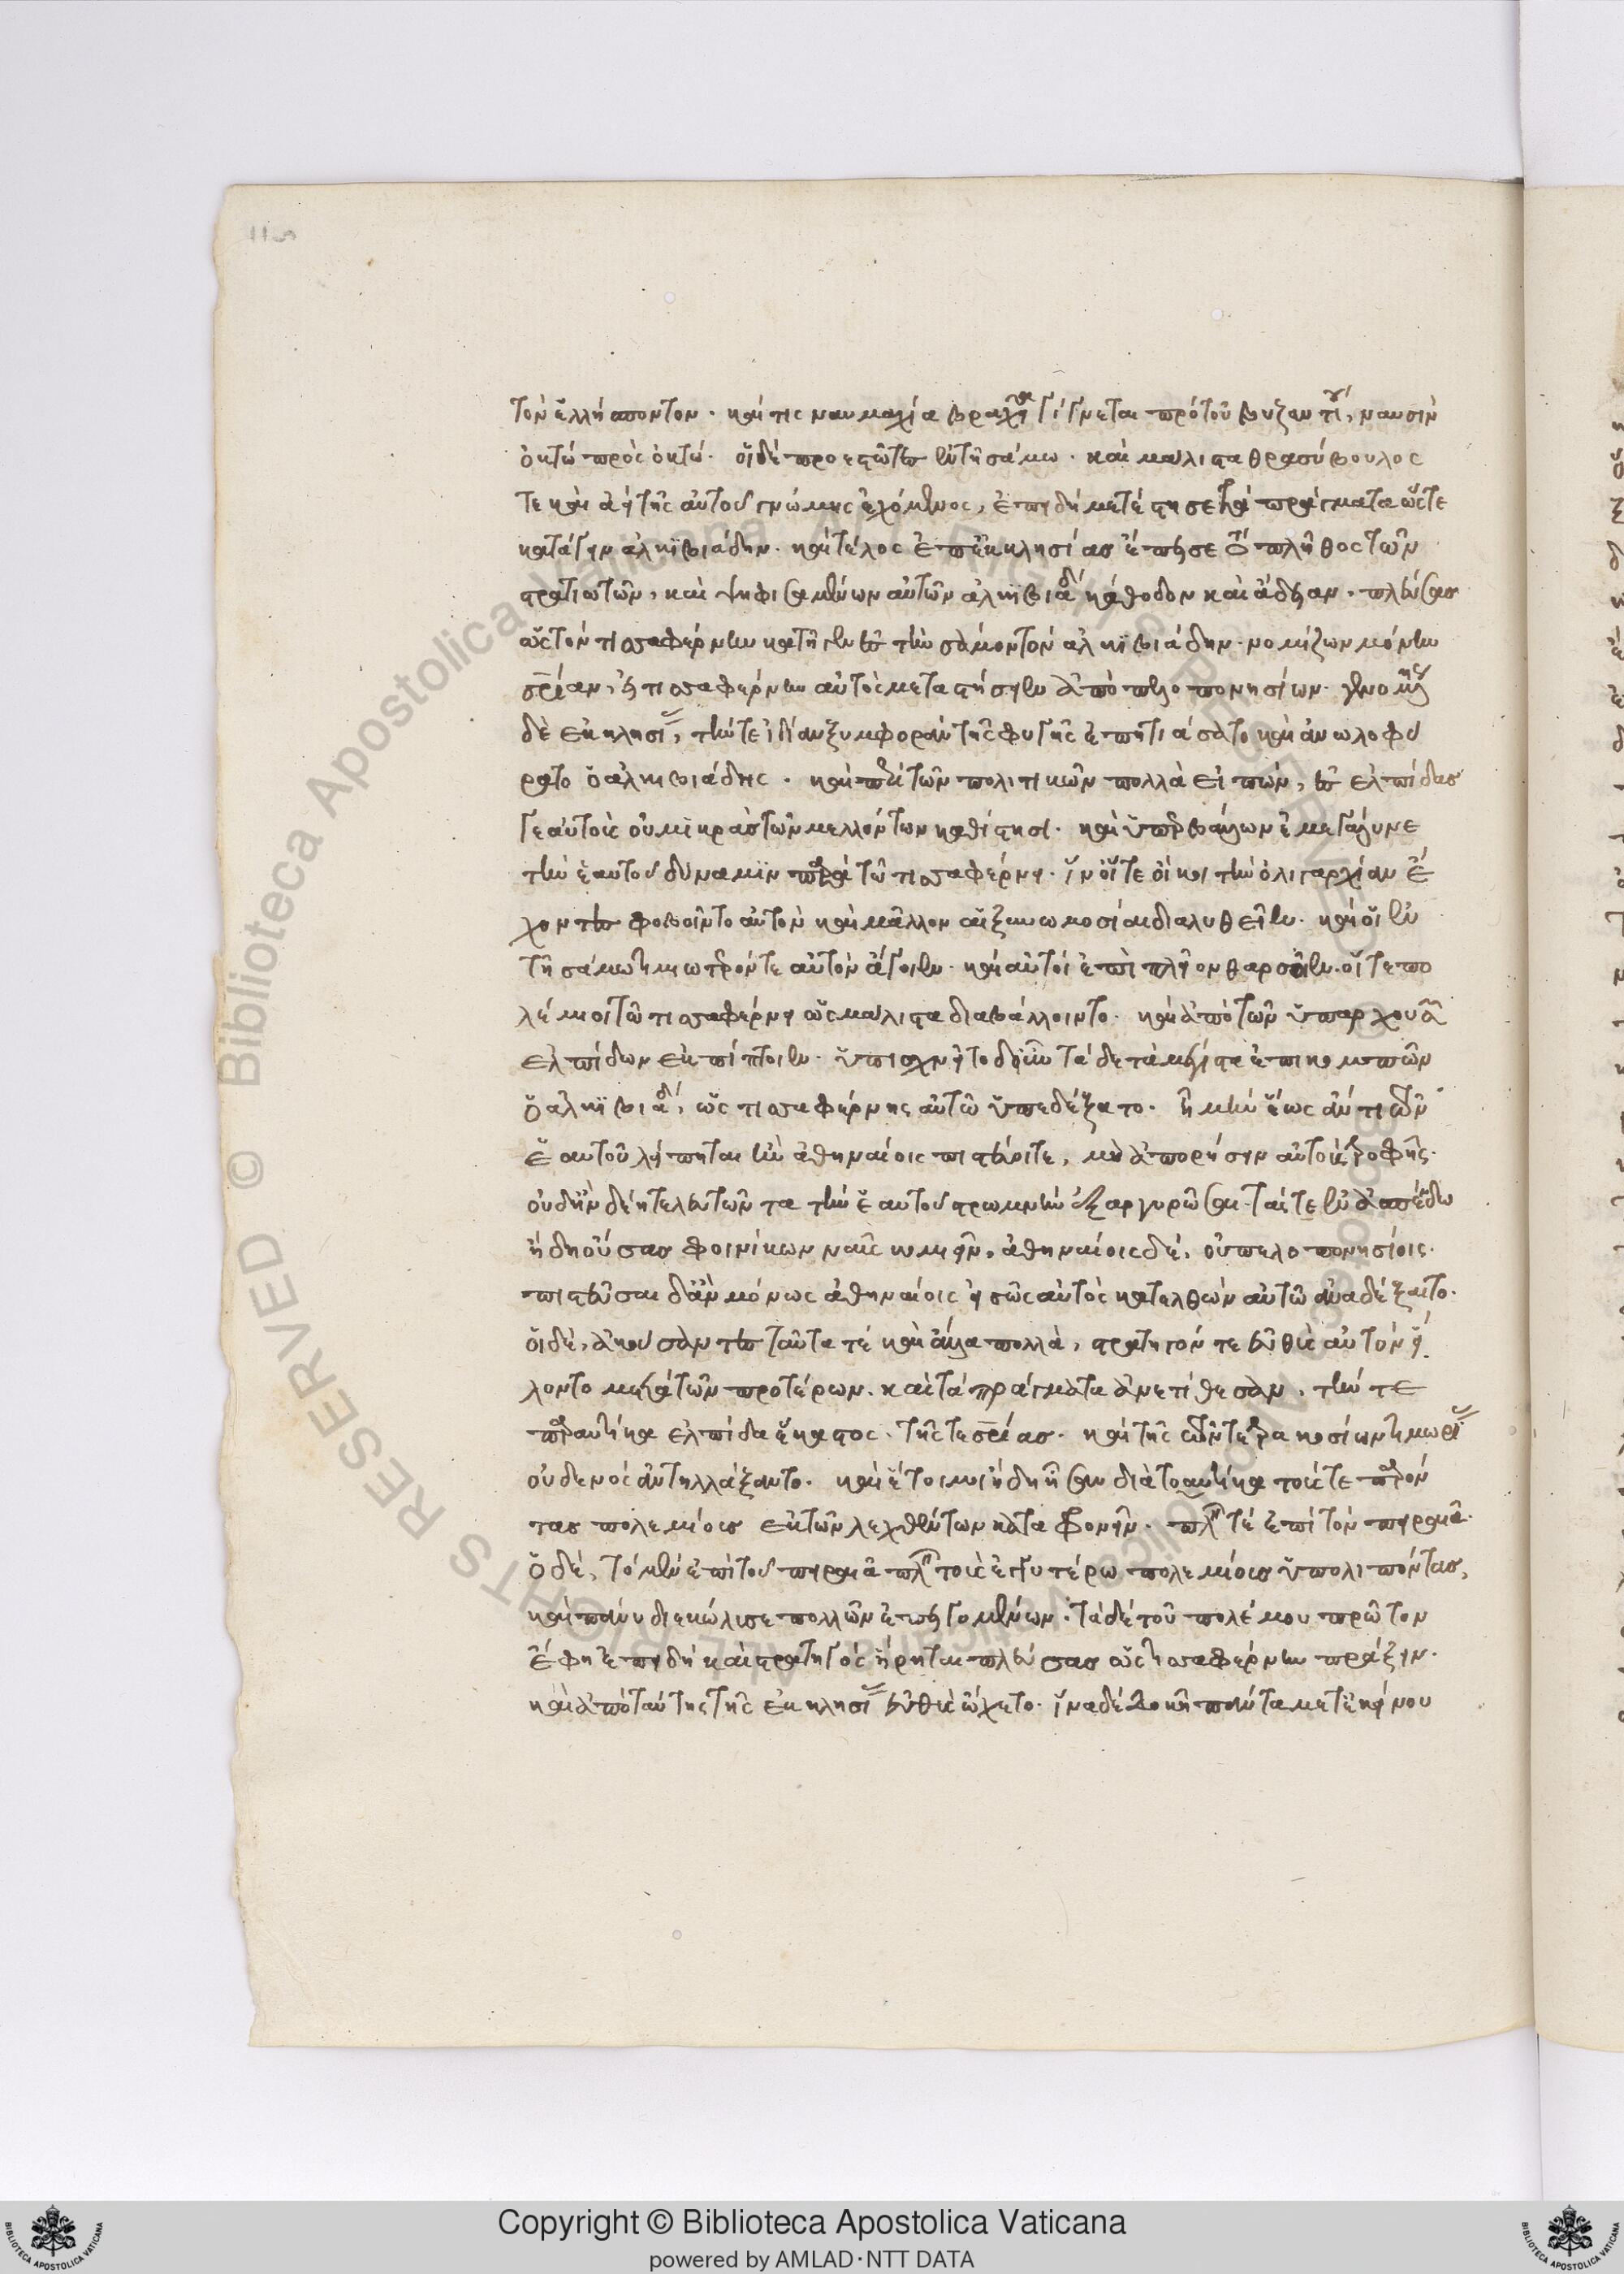 τὸν ἑλλήσποντον · καί τις ναυμαχία βραχεῖα γίγνεται πρὸ τοῦ βυζαντίου, ναυσὶν
ὀκτώ πρὸς ὀκτώ · οἱ δὲ προεστῶτες ἐν τῆ σάμω · καὶ μάλιστα θρασύβουλος
τε καὶ ἀεὶ τῆς αὐτοῦ γνώμης ἐχόμενος, ἐπειδὴ μετέστησε τὰ πράγματα ὥστε
κατάγειν ἀλκιβιάδην · καὶ τέλος ἐπ' ἐκκλησίας ἔπεισε τὸ πλῆθος τῶν
στρατιωτῶν, καὶ ψηφισαμένων αὐτῶν ἀλκιβιάδη κάθοδον καὶ ἄδειαν · πλεύσας
ὡς τὸν τισσαφέρνην κατῆγεν ἐς τὴν σάμον τὸν ἀλκιβιάδην · νομίζων μόνην
σωτηρίαν, εἰ τισσαφέρνην αὐτοῖς μεταστήσειεν ἀπὸ πελοπονησίων · γενομένης
δὲ ἐκκλησίας, τήν τε ἰδίαν ξυμφορὰν τῆς φυγῆς ἐπητιάσατο καὶ ἀνωλοφύ
ρατο ὁ ἀλκιβιάδης · καὶ περὶ τῶν πολιτικῶν πολλὰ εἰπών, ἐς ἐλπίδας
τε αὐτοὺς οὐ μικρὰς τῶν μελλόντων καθίστησι · καὶ ὑπερβάλλων ἐμεγάλυνε
τὴν ἑαυτοῦ δύναμιν παρὰ τῶ τισσαφέρνει · ἵν' οἵ τε οἴκοι τὴν ὀλιγαρχίαν ἔ
χοντες φοβοῖντο αὐτὸν καὶ μᾶλλον αἱ ξυνωμοσίαι διαλυθεῖεν · καὶ οἱ ἐν
τῆ σάμω τιμιώτερόν τε αὐτὸν ἄγοιεν · καὶ αὐτοὶ ἐπὶ πλεῖον θαρσοῖεν · οἵ τε πο
λέμιοι τῶ τισσαφέρνει ὡς μάλιστα διαβάλλοιντο · καὶ ἀπὸ τῶν ὑπαρχουσῶν
ἐλπίδων ἐκπίπτοιεν · ὑπισχνεῖτο δ' οὖν τάδε τὰ μέγιστα ἐπικομπῶν
ὁ ἀλκιβιάδης, ὡς τισσαφέρνης αὐτῶ ὑπεδέξατο · ἦ μὴν ἕως ἄν τι τῶν
ἑαυτοῦ λείπηται ἢν ἀθηναίοις πιστεύση τε, μὴ ἀπορήσειν αὐτοὺς τροφῆς ·
οὐδ' ἢν δέη τελευτῶντα τὴν ἑαυτοῦ στρωμνὴν ἐξαργυρῶσαι · τάς τε ἐν ἀσπένδω
ἤδη οὔσας φοινίκων ναῦς κομιεῖν, ἀθηναίοις δέ, οὐ πελοπονησίοις ·
πιστεῦσαι δ' ἂν μόνως ἀθηναίοις εἰ σῶς αὐτὸς κατελθὼν αὐτῶ ἀναδέξαιτο ·
οἱ δέ, ἀκούσαντες ταῦτά τε καὶ ἄλλα πολλὰ, στρατηγόν τε εὐθὺς αὐτὸν εἵ
λοντο μετὰ τῶν προτέρων · καὶ τὰ πράγματα ἀνετίθεσαν · τήν τε
παραυτίκα ἐλπίδα ἕκαστος · τῆς τε σωτηρίας · καὶ τῆς τῶν τετρακοσίων τιμωρίας
οὐδενὸς ἀντηλλάξαντο · καὶ ἕτοιμοι ἤδη ἦσαν διὰ τὸ αὐτίκα τούς τε παρόν
τας πολεμίους ἐκ τῶν λεχθέντων καταφρονεῖν · πλεῖν τέ ἐπὶ τὸν πειραιᾶ ·
ὁ δέ, τὸ μὲν ἐπὶ τοῦ πειραιᾶ πλεῖν τοὺς ἐγγυτέρω πολεμίους ὑπολιπόντας,
καὶ πάνυ διεκώλυσε πολλῶν ἐπειγομένων · τὰ δὲ τοῦ πολέμου πρῶτον
ἔφη ἐπειδὴ καὶ στρατηγὸς ἥρηται πλεύσας ὡς τισσαφέρνην πράξειν ·
καὶ ἀπὸ ταύτης τῆς ἐκκλησίας εὐθὺς ὤχετο · ἵνα δὲ δοκῆ πάντα μετ' ἐκείνου